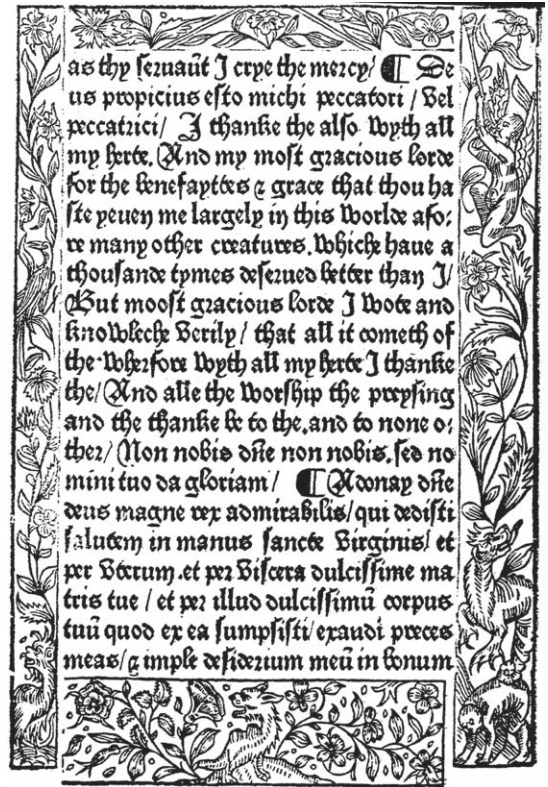 as thy seruaūt J crye the mercy/ ¶ De
us propicius esto michi peccatori / Vel
peccatrici/ J thanke the also wyth all
my herte. And my most gracious lorde
for the benefayttes ⁊ grace that thou ha
ste yeuen me largely in this worlde afo⸗
re many other creatures. whiche haue a
thousande tymes deserued better than J/
But moost gracious lorde J wote and
knowleche verily / that all it cometh of
the. wherfore wyth all my herte J thanke
the/ And alle the worship the preysing
and the thanke be to the. and to none o⸗
ther/ Non nobis dn̄e non nobis. sed no
mini tuo da gloriam/ ¶ Adonay dn̄e
deus magne rex admirabilis/ qui dedisti
salutem in manus sancte virginis/ et
per vterum. et per viscera dulcissime ma
tris tue / et per illud dulcissimū corpus
tuū quod ex ea sumpsisti/ exaudi preces
meas/ ⁊ imple desiderium meū in bonum